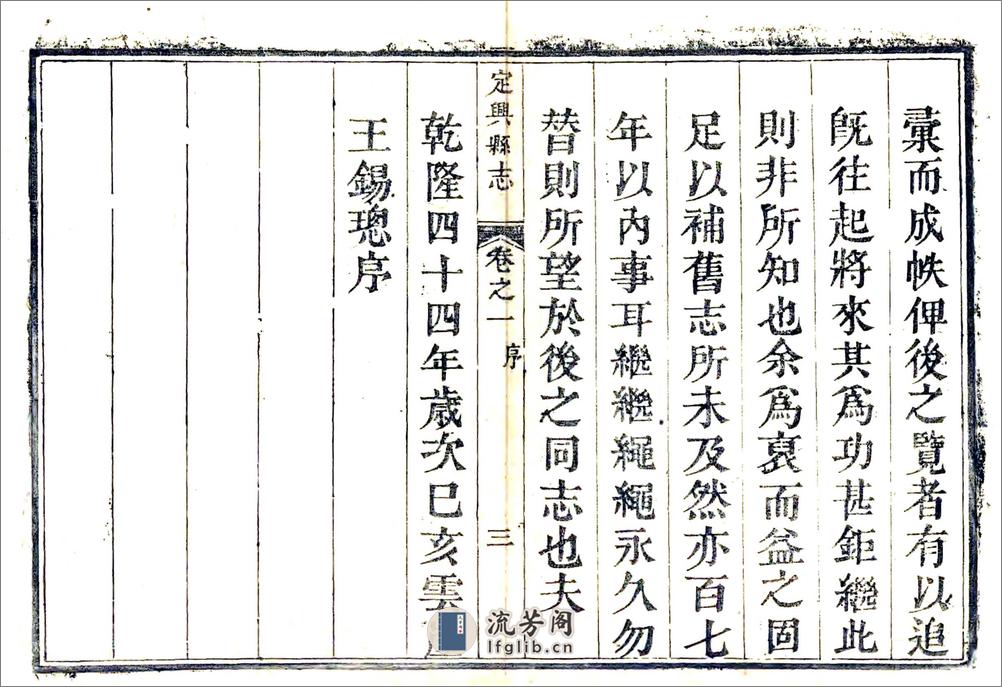 彚而成帙俾後之覽者有以追
旣往起將來其爲功甚鉅繼此
則非所知也余爲裒而益之固
足以補舊志所未及然亦百七
年以內事耳繼繼繩繩永久勿
替則所望於後之同志也夫
定興縣志
卷之一
序
三
乾隆四十四年歲次已亥雲
王錫璁序
流芳阁
lfglib.cn